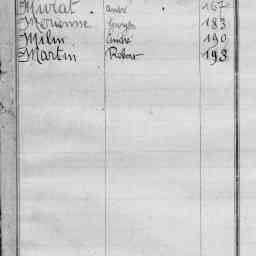 Murat André 167
Morienne Georges 183
Milin André 190
Martin Robert 198